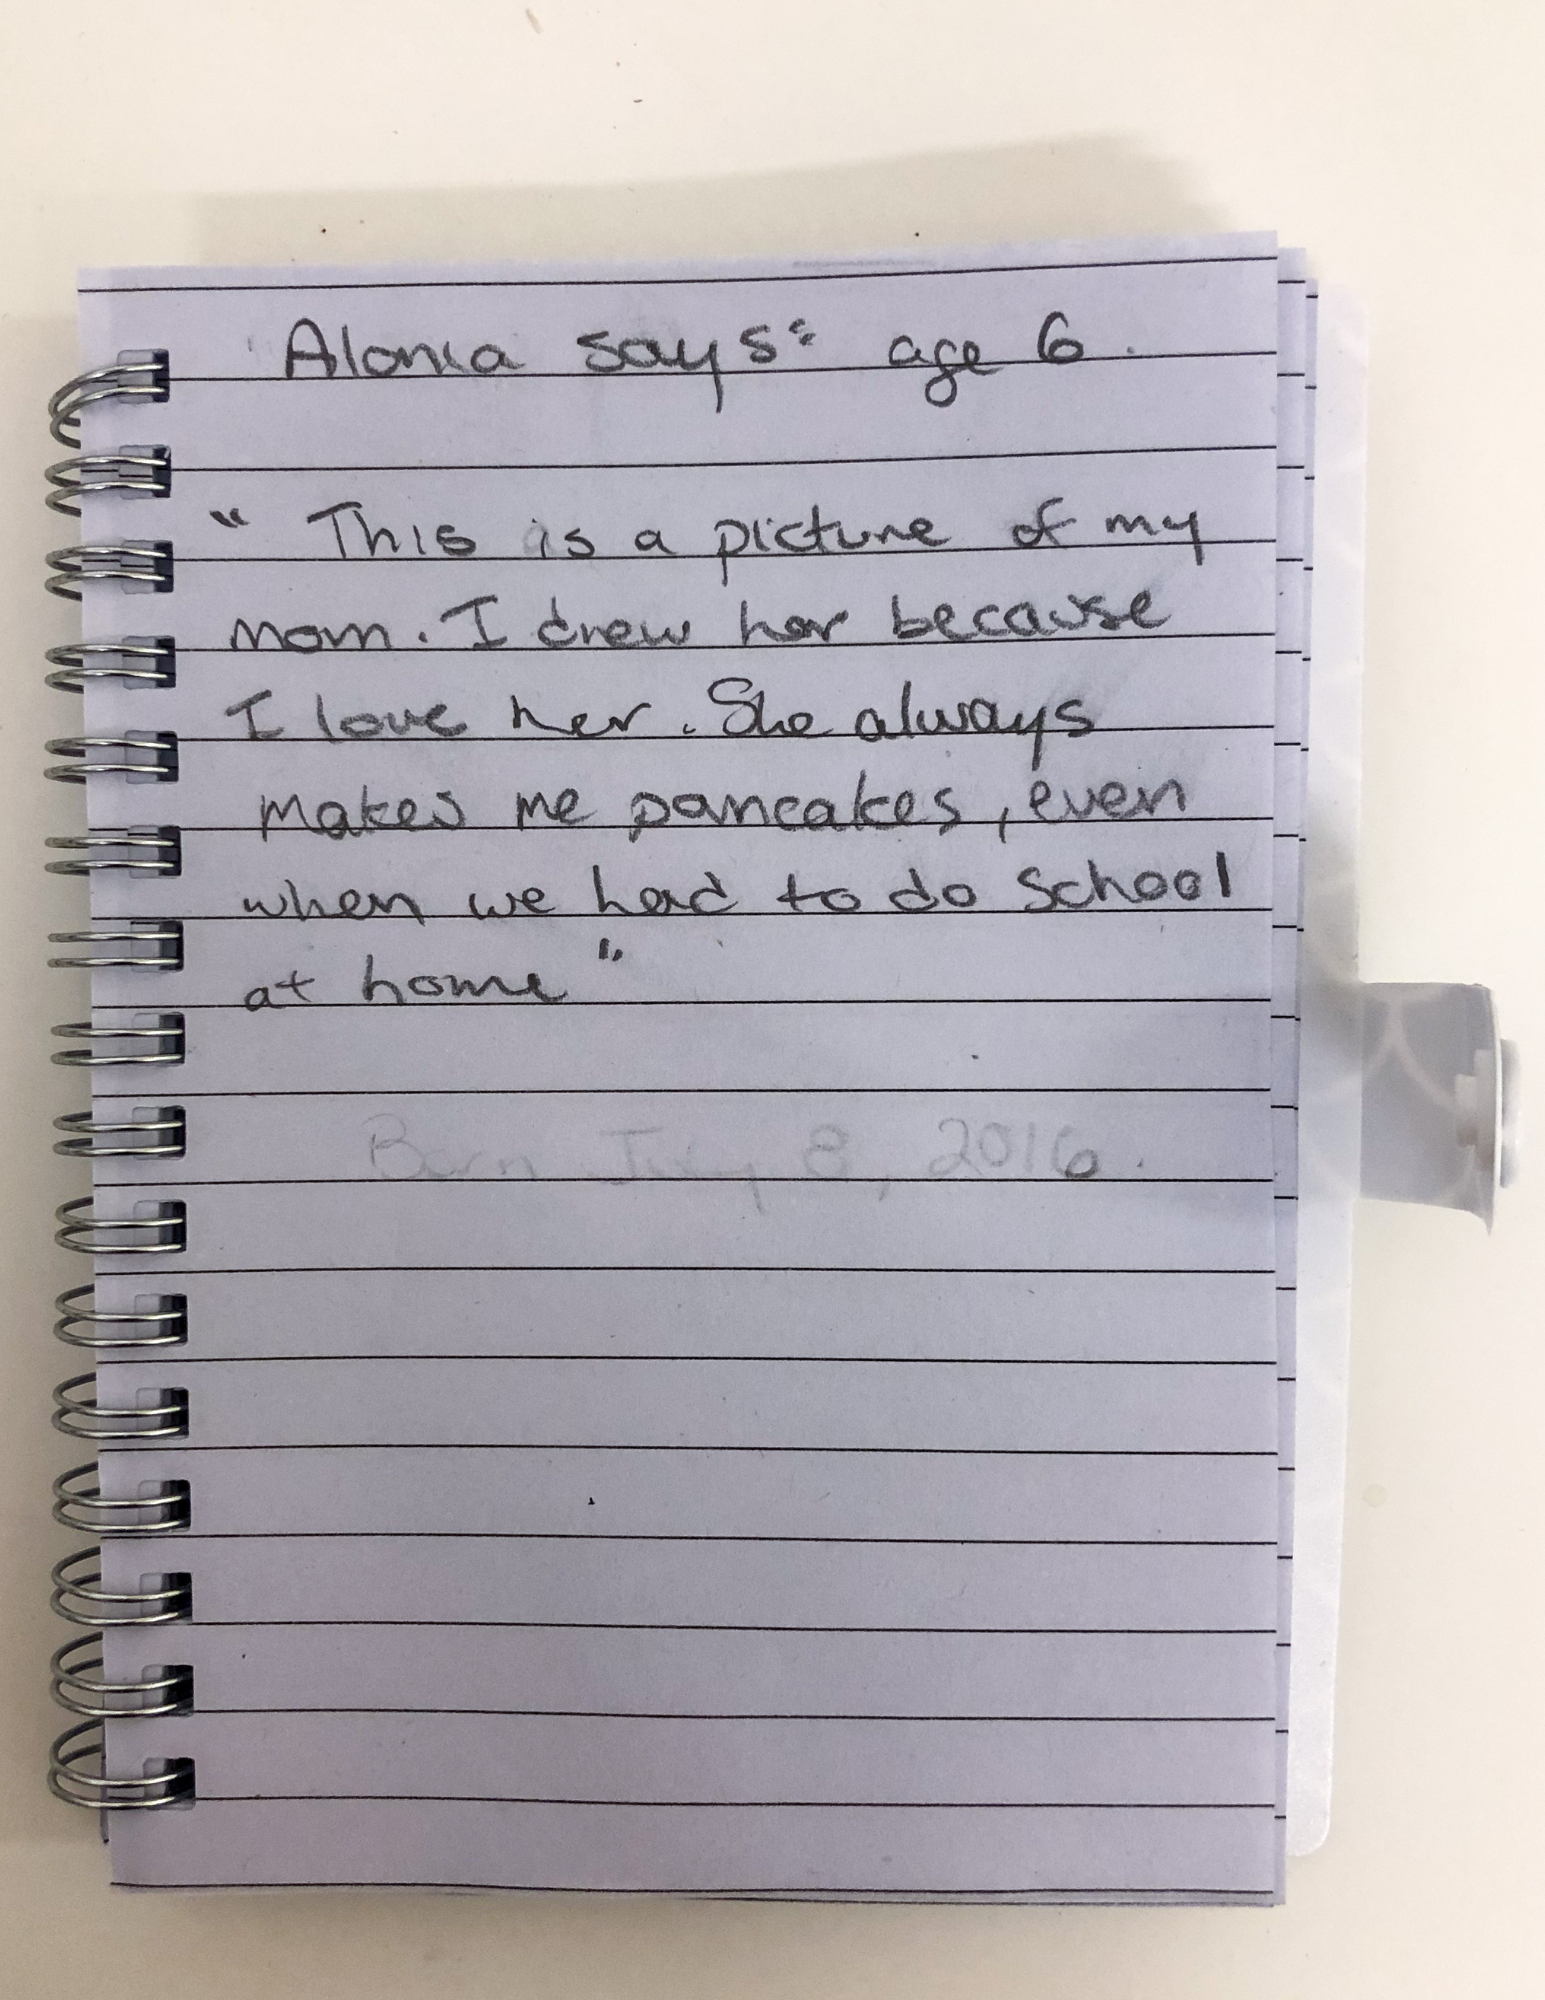 Alonia says: age 6.
" This is a picture of my
mom. I drew her because
I love her. She always
makes me pancakes, even
when we had to do school
at home"
Born July 8, 2016.